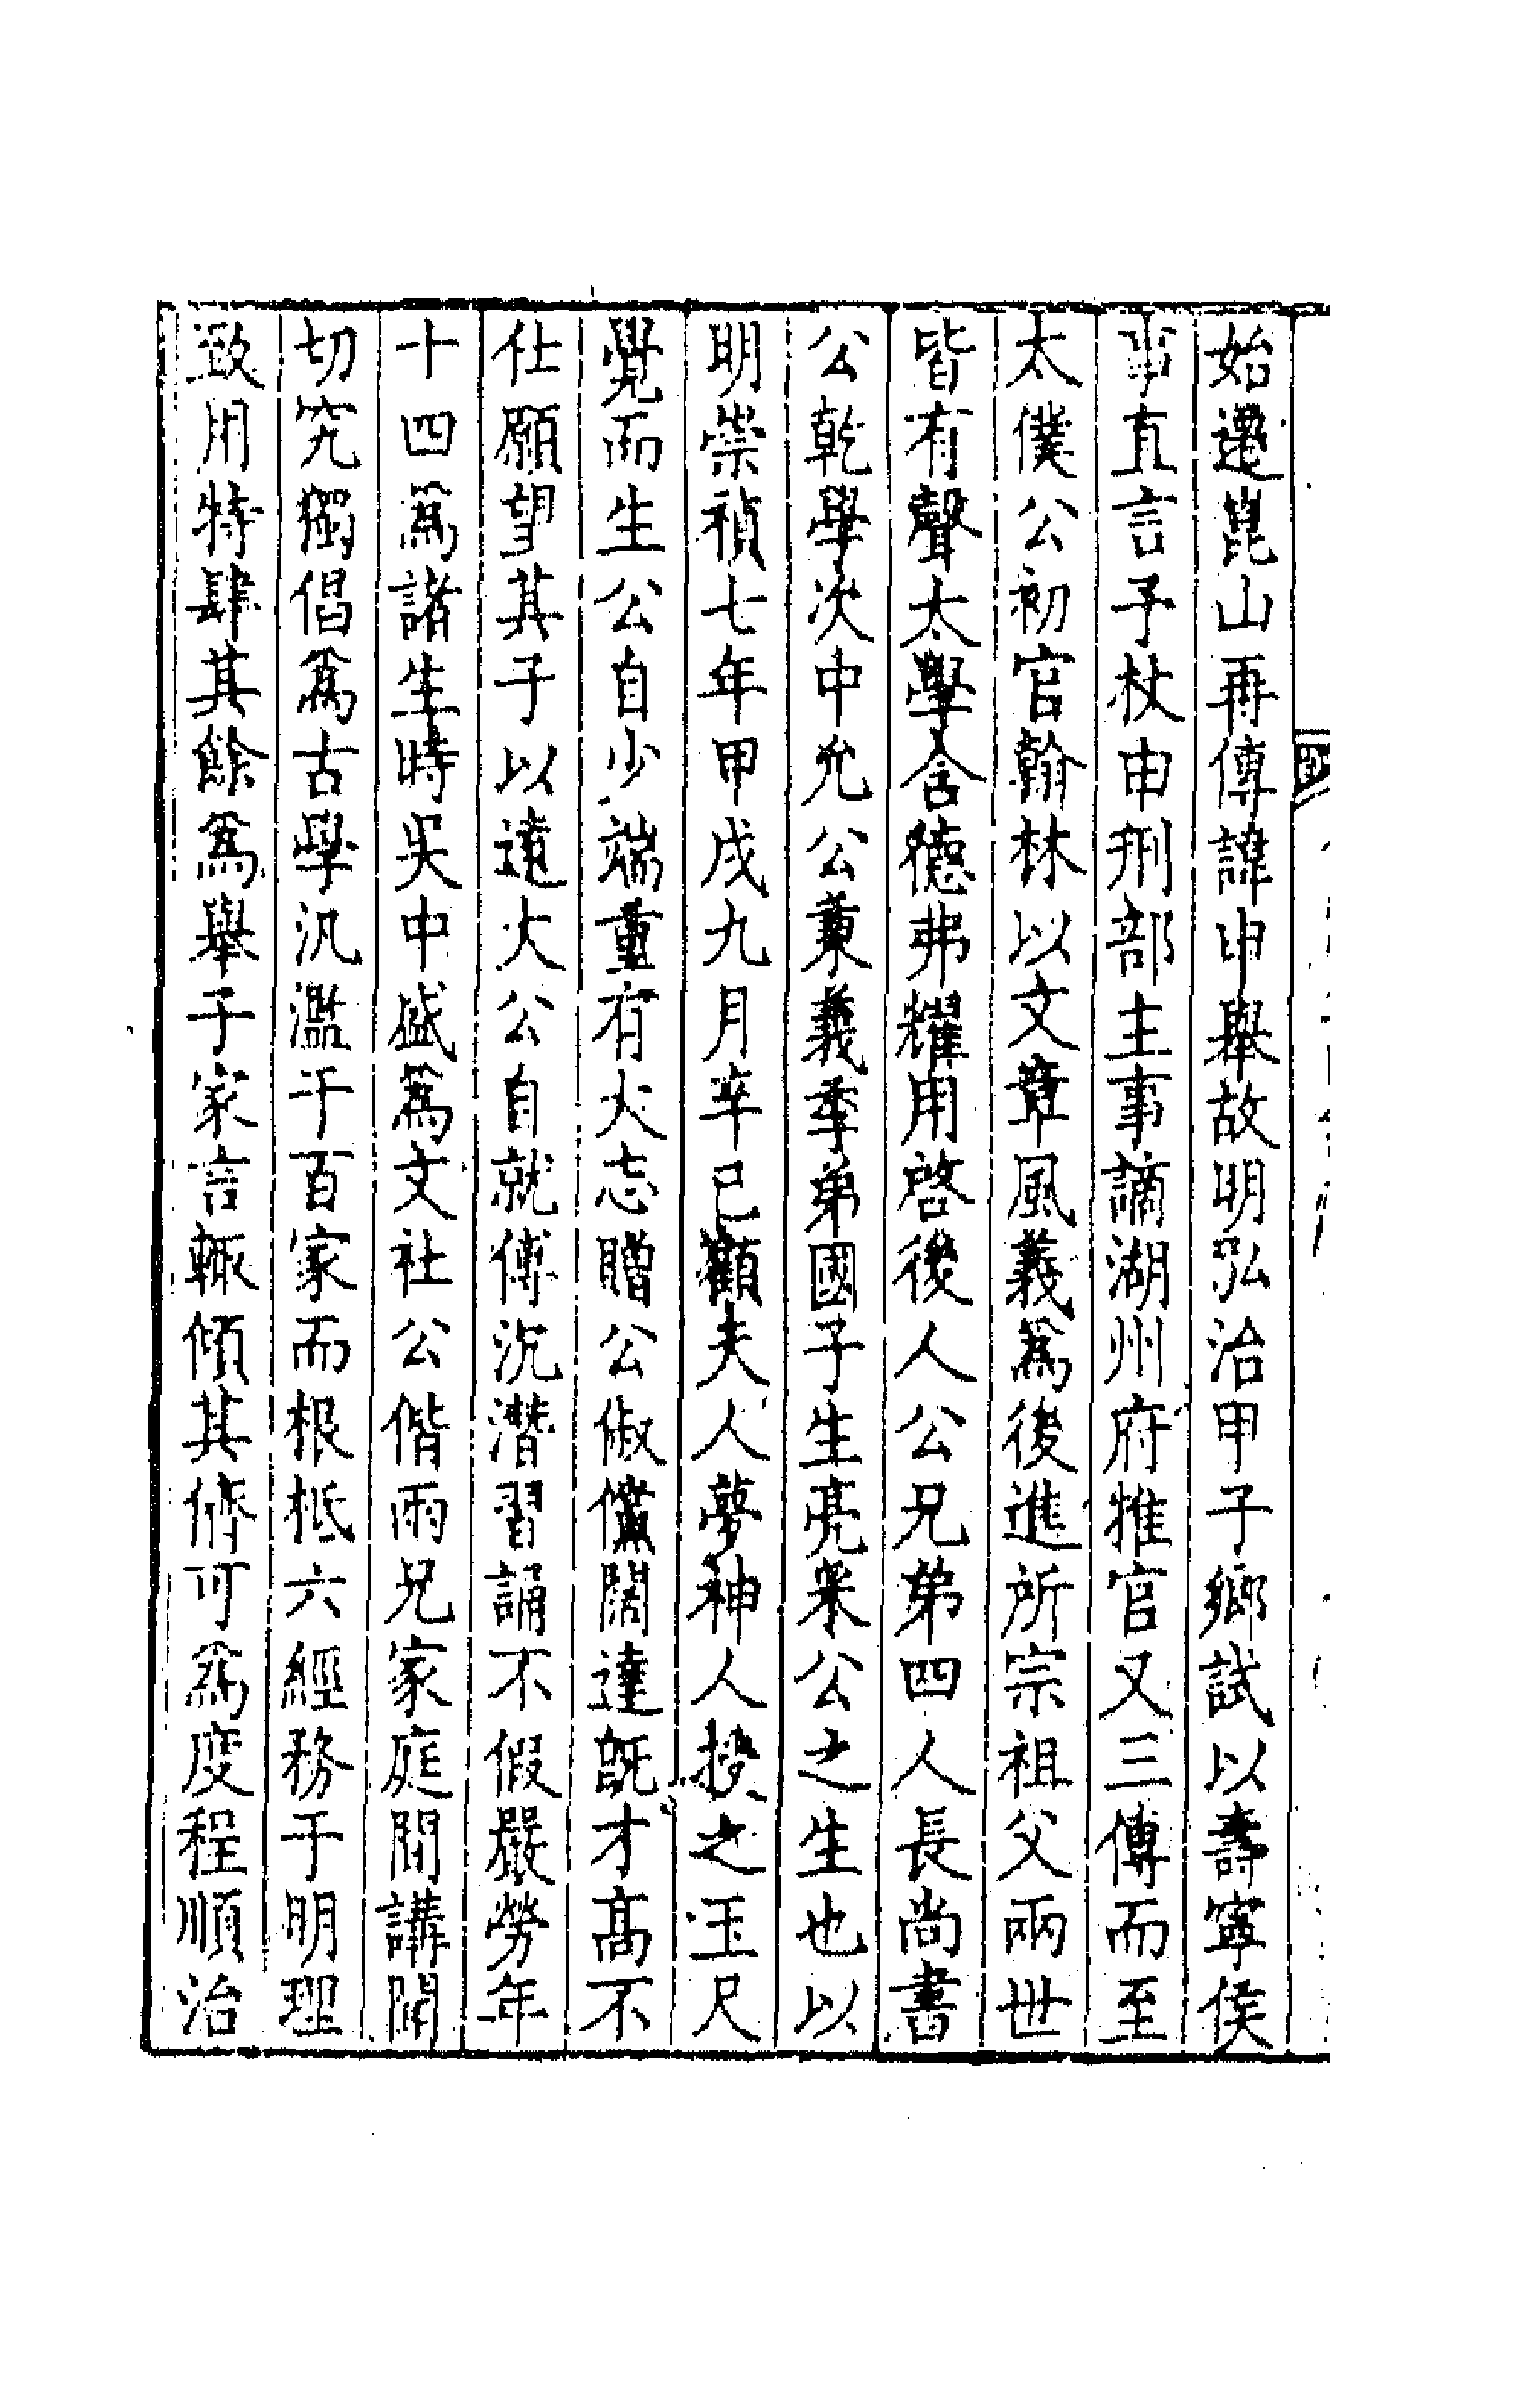 始遷崑山再傳諱申舉故明弘治甲子鄉試以壽寧侯
事直言予杖由刑部主事謫湖州府推官又三傳而至
太僕公初官翰林以文章風義爲後進所宗祖父兩世
皆有聲太學含德弗耀用啓後人公兄弟四人長尚書
公乾學次中允公秉義季弟國子生亮采公之生也以
明崇禎七年甲戌九月辛巳顧夫人夢神人授之玉尺
覺而生公自少端重有大志贈公俶儻闊達旣才高不
仕願望其子以遠大公自就傅沉潛習誦不假嚴勞年
十四爲諸生時吳中盛爲文社公偕兩兄家庭間講聞
切究獨倡爲古學汎濫千百家而根柢六經務于明理
致用特肆其餘爲舉子家言輒傾其儕可爲度程順治